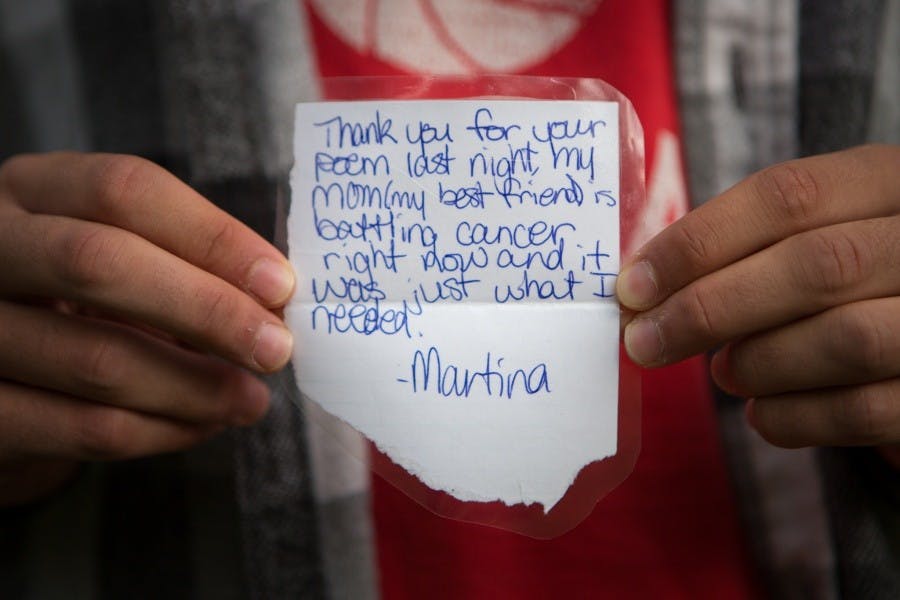 Thank you for your
poem last night, my
mom (my best friend) is
battling cancer
right now and it
was just what I
needed!
-Martina